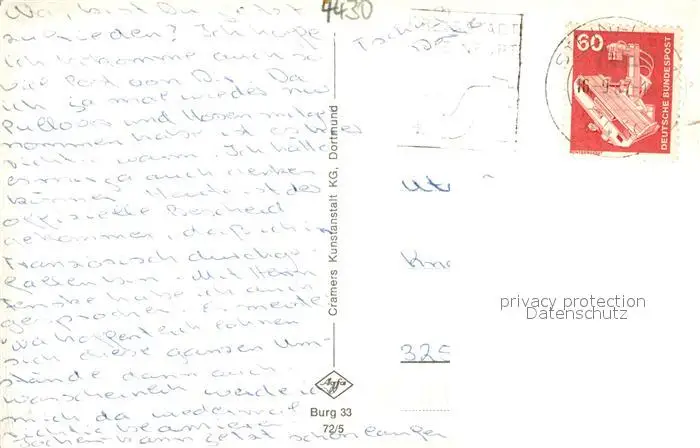 4430
Na, bist Du jetzt
zufrieden? Ich hoffe
ich bekomme auch so
viel Post von Dir. Da
ich ja mal wieder nur
Pullover und Hosen mitge
nommen habe ist es hier
nicht warm. Ich hätte
es mir ja auch denken
können. Heute ist der
offizielle Bescheid
gekommen, daß ich in
Französisch durchge-
fallen bin. Mit Herrn
habe ich auch
gesprochen. Er meinte
hoffentlich lohnen
sich diese ganzen Um-
stände dann auch.
Wahrscheinlich werde ich
mich da wieder
richtig blamieren
kann jetzt schon sagen
Tschüß
Cramers Kunstanstalt KG, Dortmund
Agfa
Burg 33
72/5
60
DEUTSCHE BUNDESPOST
Ut
Kn
325
privacy protection
Datenschutz